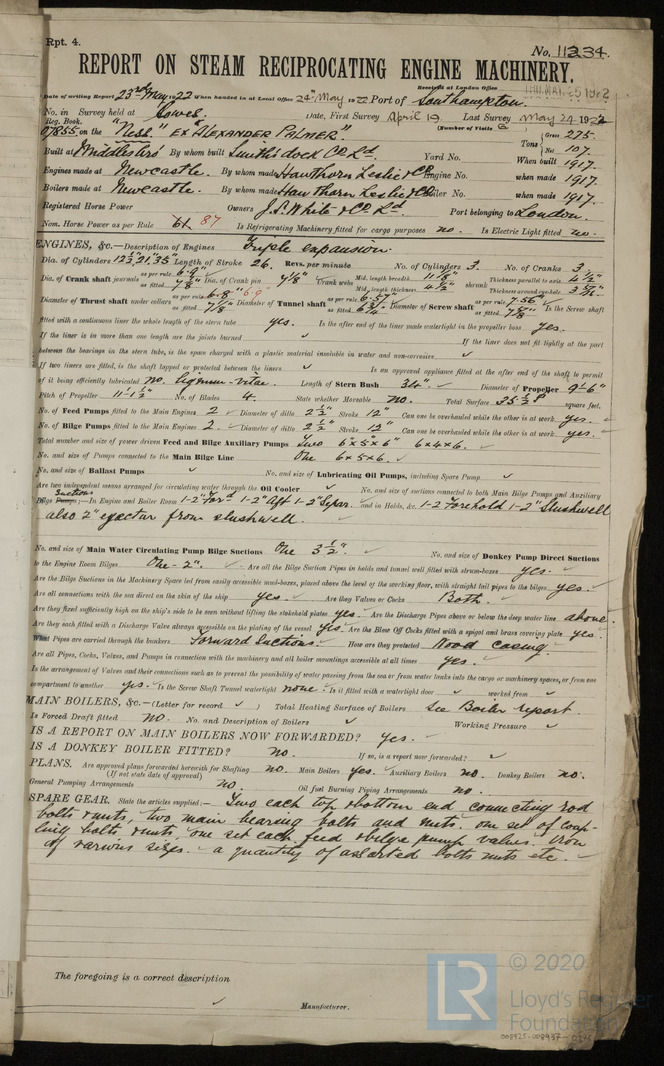 Rpt. 4.
No. 11234.
REPORT ON STEAM RECIPROCATING ENGINE MACHINERY.
Received at London Office THU. MAY. 25 1922
Date of writing Report 23rd May 1922 When handed in at Local Office 24th May 1922 Port of Southampton.
No. in Survey held at Cowes. Date, First Survey April 19 Last Survey May 24 1922
Reg. Book. (Number of Visits 6)
07855 on the "Nesh" Ex "ALEXANDER PALMER". Tons Gross 275. Net 107.
Built at Middlesbro' By whom built Smith's dock Co Ld. Yard No. When built 1917.
Engines made at Newcastle. By whom made Hawthorn Leslie & Co Engine No. when made 1917.
Boilers made at Newcastle. By whom made Hawthorn Leslie & Co Boiler No. when made 1917.
Registered Horse Power Owners J.S. White & Co Ld. Port belonging to London.
Nom. Horse Power as per Rule 61 87 Is Refrigerating Machinery fitted for cargo purposes no. Is Electric Light fitted no.
ENGINES, &c.—Description of Engines Triple expansion.
Dia. of Cylinders 12½", 21", 35" Length of Stroke 26. Revs. per minute No. of Cylinders 3. No. of Cranks 3
Dia. of Crank shaft journals as per rule 6·9" as fitted 7⅛" Dia. of Crank pin 7⅛" Crank webs Mid. length breadth 11⅛" Mid. length thickness 4½" shrunk Thickness parallel to axis 4½" Thickness around eye-hole
Diameter of Thrust shaft under collars as per rule 6·8" 6·9" as fitted 7⅛" Diameter of Tunnel shaft as per rule 6·57" as fitted 6¾" Diameter of Screw shaft as per rule 7·56" as fitted 7⅝" Is the Screw shaft
fitted with a continuous liner the whole length of the stern tube yes. Is the after end of the liner made watertight in the propeller boss yes.
If the liner is in more than one length are the joints burned ✓ If the liner does not fit tightly at the part
between the bearings in the stern tube, is the space charged with a plastic material insoluble in water and non-corrosive ✓
If two liners are fitted, is the shaft lapped or protected between the liners ✓ Is an approved appliance fitted at the after end of the shaft to permit
of it being efficiently lubricated no. lignum-vitae. Length of Stern Bush 34". Diameter of Propeller 9'-6"
Pitch of Propeller 11'-1½" No. of Blades 4. State whether Moveable no. Total Surface 25½ square feet.
No. of Feed Pumps fitted to the Main Engines 2 Diameter of ditto 2½" Stroke 12" Can one be overhauled while the other is at work yes.
No. of Bilge Pumps fitted to the Main Engines 2 Diameter of ditto 2½" Stroke 12" Can one be overhauled while the other is at work yes.
Total number and size of power driven Feed and Bilge Auxiliary Pumps Two 6"×5"×6" 6×4×6.
No. and size of Pumps connected to the Main Bilge Line One 6×5×6.
No. and size of Ballast Pumps ✓ No. and size of Lubricating Oil Pumps, including Spare Pump ✓
Are two independent means arranged for circulating water through the Oil Cooler ✓ No. and size of suctions connected to both Main Bilge Pumps and Auxiliary
Suctions
Bilge Pumps;—In Engine and Boiler Room 1-2" Ford 1-2" Aft 1-2" Separ. and in Holds, &c. 1-2 Forehold 1-2" Slushwell
also 2" ejector from slushwell.
No. and size of Main Water Circulating Pump Bilge Suctions One 3½". No. and size of Donkey Pump Direct Suctions
to the Engine Room Bilges One-2". Are all the Bilge Suction Pipes in holds and tunnel well fitted with strum-boxes yes.
Are the Bilge Suctions in the Machinery Space led from easily accessible mud-boxes, placed above the level of the working floor, with straight tail pipes to the bilges yes.
Are all connections with the sea direct on the skin of the ship yes. Are they Valves or Cocks Both.
Are they fixed sufficiently high on the ship's side to be seen without lifting the stokehold plates yes. Are the Discharge Pipes above or below the deep water line above.
Are they each fitted with a Discharge Valve always accessible on the plating of the vessel yes. Are the Blow Off Cocks fitted with a spigot and brass covering plate yes.
What Pipes are carried through the bunkers Forward Suctions. How are they protected Wood casing.
Are all Pipes, Cocks, Valves, and Pumps in connection with the machinery and all boiler mountings accessible at all times yes.
Is the arrangement of Valves and their connections such as to prevent the possibility of water passing from the sea or from water tanks into the cargo or machinery spaces, or from one
compartment to another yes. Is the Screw Shaft Tunnel watertight none. Is it fitted with a watertight door ✓ worked from ✓
MAIN BOILERS, &c.—(Letter for record ✓ ) Total Heating Surface of Boilers See Boiler report.
Is Forced Draft fitted no. No. and Description of Boilers ✓ Working Pressure ✓
IS A REPORT ON MAIN BOILERS NOW FORWARDED? yes.
IS A DONKEY BOILER FITTED? no. If so, is a report now forwarded? ✓
PLANS. Are approved plans forwarded herewith for Shafting no. Main Boilers yes. Auxiliary Boilers no. Donkey Boilers no.
(If not state date of approval)
General Pumping Arrangements no. Oil fuel Burning Piping Arrangements no.
SPARE GEAR. State the articles supplied:— Two each top & bottom end connecting rod
bolts & nuts, two main bearing bolts and nuts. one set of coup-
ling bolts & nuts, one set each feed & bilge pump valves. Iron
of various sizes. a quantity of assorted bolts nuts etc.
The foregoing is a correct description
Manufacturer.
© 2020
LR
Lloyd's Register
Foundation